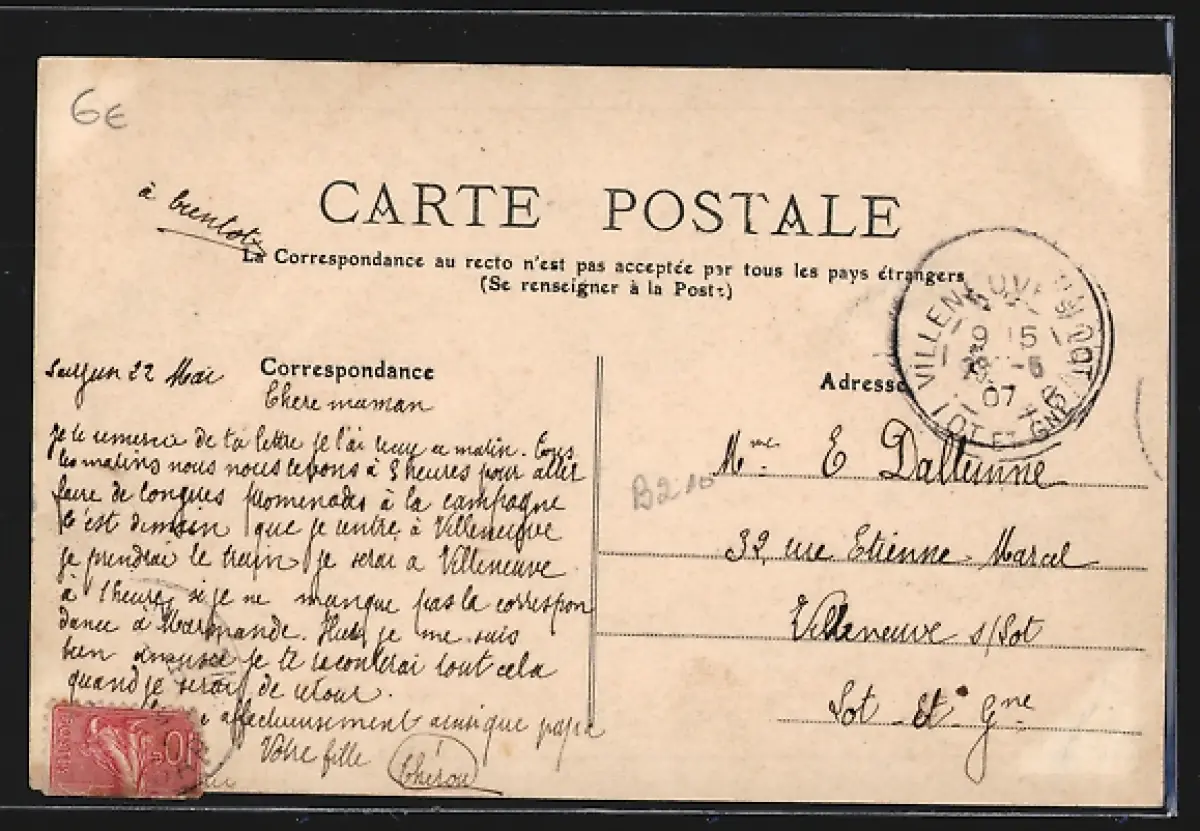 6€
à bientot
CARTE POSTALE
La Correspondance au recto n'est pas acceptée par tous les pays étrangers
(Se renseigner à la Poste)
Correspondance
22 Mai
Chere maman
Je te remercie de ta lettre je l'ai reçue ce matin. Tous
les matins nous nous levons à 5 heures pour aller
faire de longues promenades à la campagne
C'est demain que je rentre à Villeneuve
je prendrai le train je serai a Villeneuve
à 1 heure, si je ne manque pas la correspon
dance à Marmande. Hier je me suis
bien amusée je te raconterai tout cela
quand je serai de retour.
affectueusement ainsi que papa
Votre fille
Adresse
Mme E
32, rue Etienne-Marcel
Villeneuve s/Lot
Lot-Et-Gne
B210
VILLENEUVE-SUR-LOT
07
LOT ET GNE
10